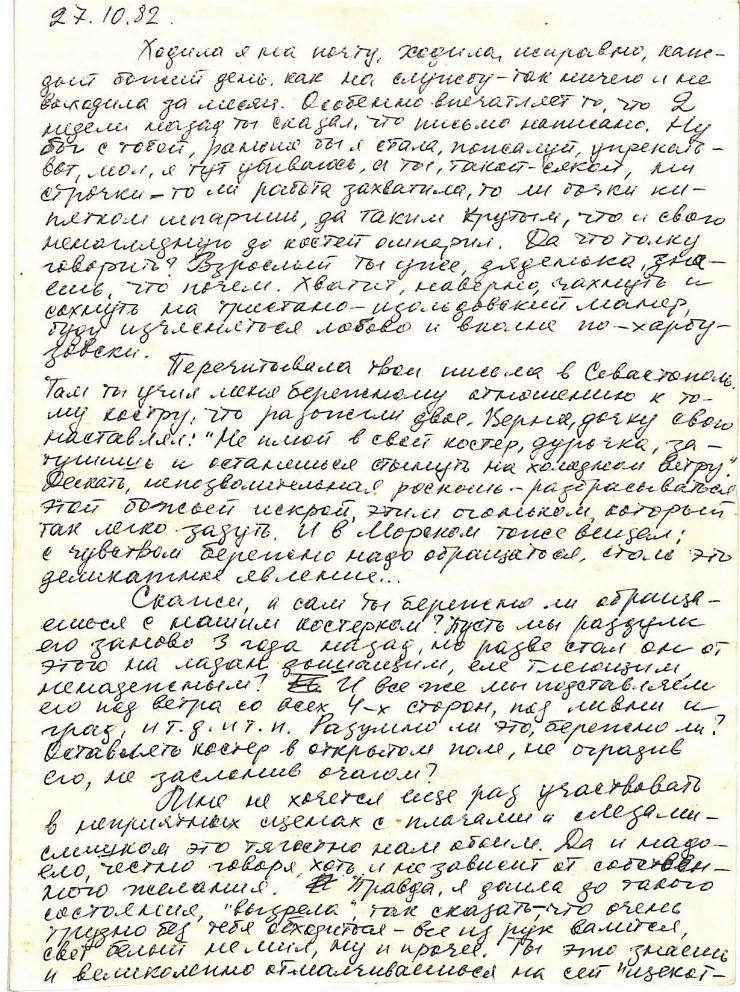 27.10.82.
Ходила я на почту, ходила, исправно, каж-
дый божий день, как на службу – так ничего и не
выходила за месяц. Особенно впечатляет то, что 2
недели назад ты сказал, что письмо написано. Ну
бог с тобой, раньше бы я стала, пожалуй, упрекать –
вот, мол, я тут убиваюсь, а ты, такой-сякой, ни
строчки – то ли работа захватила, то ли бочки ки-
пятком шпаришь, да таким крутым, что и свою
ненаглядную до костей ошпарил. Да что толку
говорить? Взрослый ты уже, дяденька, зна-
ешь, что почем. Хватит, наверно, чахнуть и
сохнуть на тристано-изольдовский манер,
буду изъясняться лобово и вполне по-харбу-
зовски.
Перечитывала твои письма в Севастополь.
Там ты учил меня бережному отношению к то-
му костру, что разожгли двое. Верно, дочку свою
наставлял: "Не плюй в свой костер, дурочка, за-
тушишь и останешься стынуть на холодном ветру".
Дескать, непозволительная роскошь – разбрасываться
этой божьей искрой, этим огоньком, который
так легко задуть. И в Морском тоже вещал:
с чувством бережно надо обращаться, столь это
деликатное явление...
Скажи, а сам ты бережно ли обраща-
ешься с нашим костерком? Пусть мы раздули
его заново 3 года назад, но разве стал он от
этого на ладан дышащим, еле тлеющим,
ненадежным? И все же мы подставляем
его под ветра со всех 4-х сторон, под ливни и
град, и т.д. и т.п. Разумно ли это, бережно ли?
Оставлять костер в открытом поле, не оградив
его, не заслонив очагом?
Мне не хочется еще раз участвовать
в неприятных сценах с плачами и слезами –
слишком это тягостно нам обоим. Да и надо-
ело, честно говоря, хоть и не зависит от собствен-
ного желания. Правда, я дошла до такого
состояния, "вызрела", так сказать, что очень
трудно без тебя обходиться – все из рук валится,
свет белый не мил, ну и прочее. Ты это знаешь
и великолепно отмалчиваешься на сей "щекот-